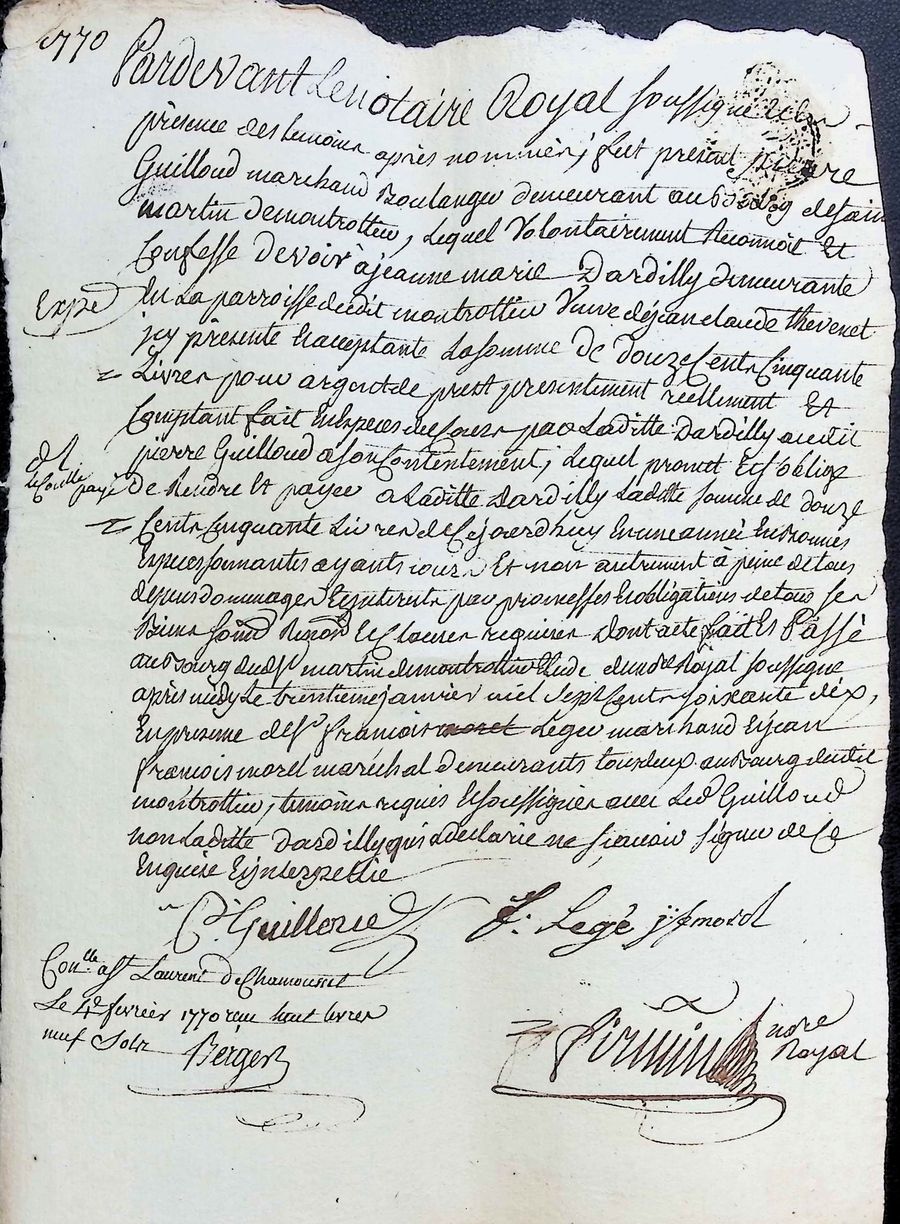 1770
Pardevant Lenotaire Royal soussigné et en
présence des temoins après nommés, fut present pierre
Guilloud marchand Boulanger demeurant au bourg de sain
martin de montrottier, Lequel Volontairement Reconnoit Et
Confesse devoir à jeanne marie Dardilly demeurante
Expé
En La parroisse dudit montrottier Veuve de jean claude thevenet
jcy présente Et acceptante La somme de douze Cents Cinquante
Livres pour argent de prest presentement reellement Et
Comptant fait En Especes de Cours par Laditte Dardilly audit
pierre Guilloud a son Contentement, Lequel promet Et s'oblige
Le Conlle payé
De Rendre Et payer a Laditte Dardilly Laditte somme de douze
Cents Cinquante Livres de Cejourdhuy En une année En Bonnes
Especes sonnantes ayants cours Et non autrement à peine de tous
depens dommages Et interets par promesses Et obligations de tous ses
Biens Et Clauses requises Dont acte fait Et Passé
au Bourg dudt St martin de montrottier Etude du Royal soussigné
après midy Le trentieme janvier mil sept cents soixante dix,
En presence de Sr francois morel Legé marchand Et jean
francois morel maréchal demeurants tous deux au Bourg dudit
montrottier, temoins requis Et soussignés avec Led Guilloud
non Laditte Dardilly qui a declaré ne scavoir signer de Ce
Enquise Et interpellée
P. Guilloud
F. Legé jf morel
Conlle a St Laurent de Chamousset
Le 4e fevrier 1770 reçu huit livres
neuf sols
Berger
Pirmin nore
Royal